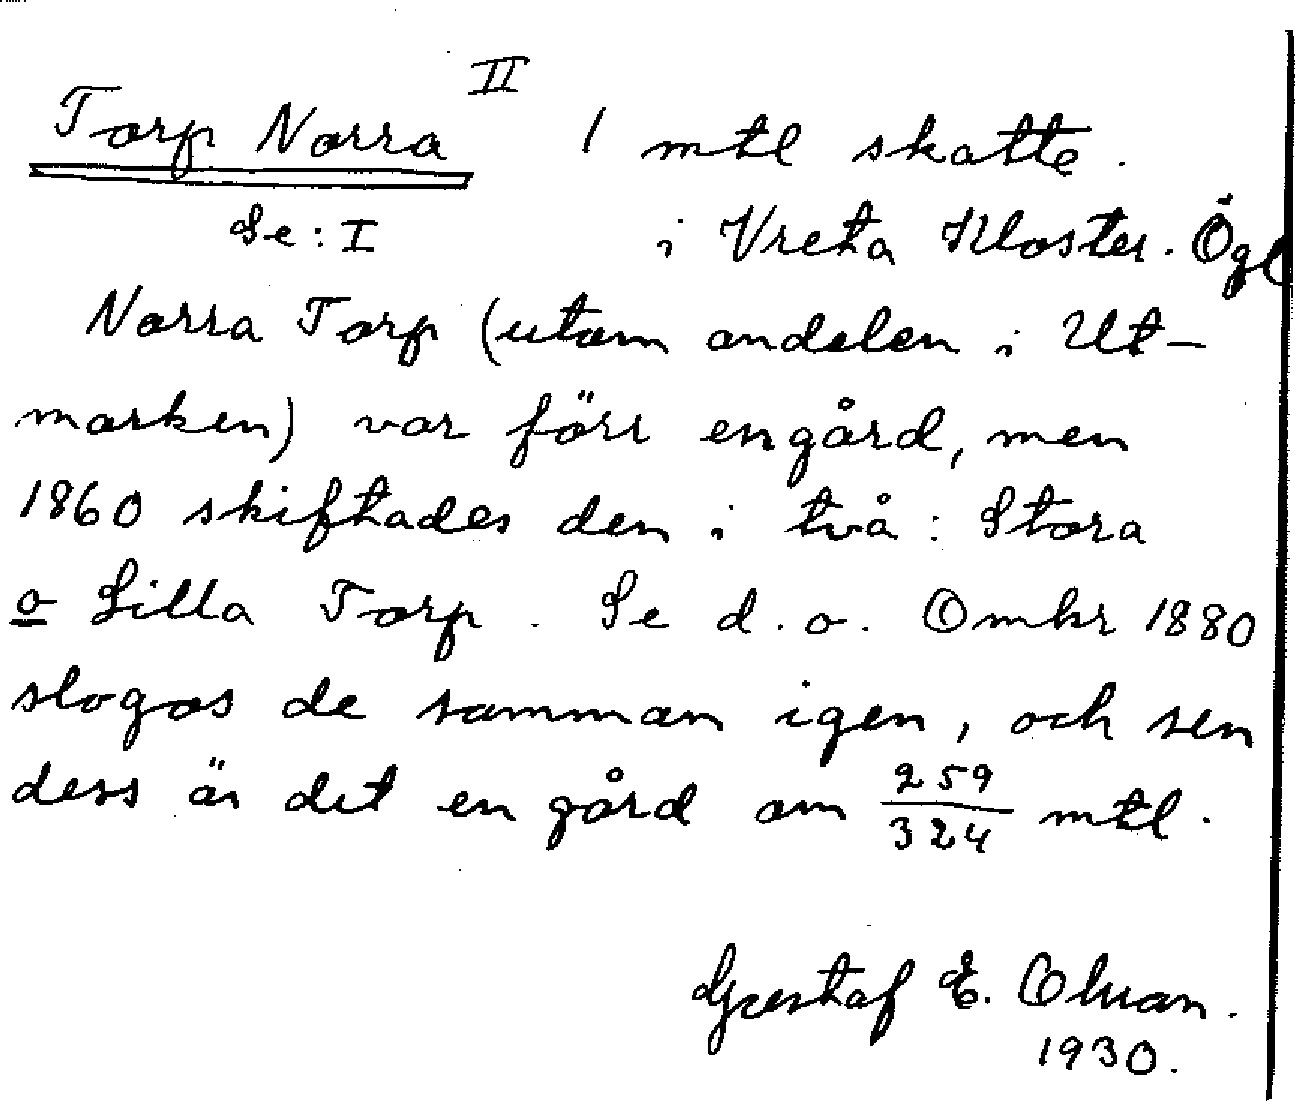 II
Torp Norra 1 mtl skatte.
Se: I i Vreta Kloster. Ögl
Norra Torp (utom andelen i Ut-
marken) var förr en gård, men
1860 skiftades den i två: Stora
o Lilla Torp. Se d. o. Omkr 1880
slogos de samman igen, och sen
dess är det en gård om 259/324 mtl.
Gustaf E.
1930.